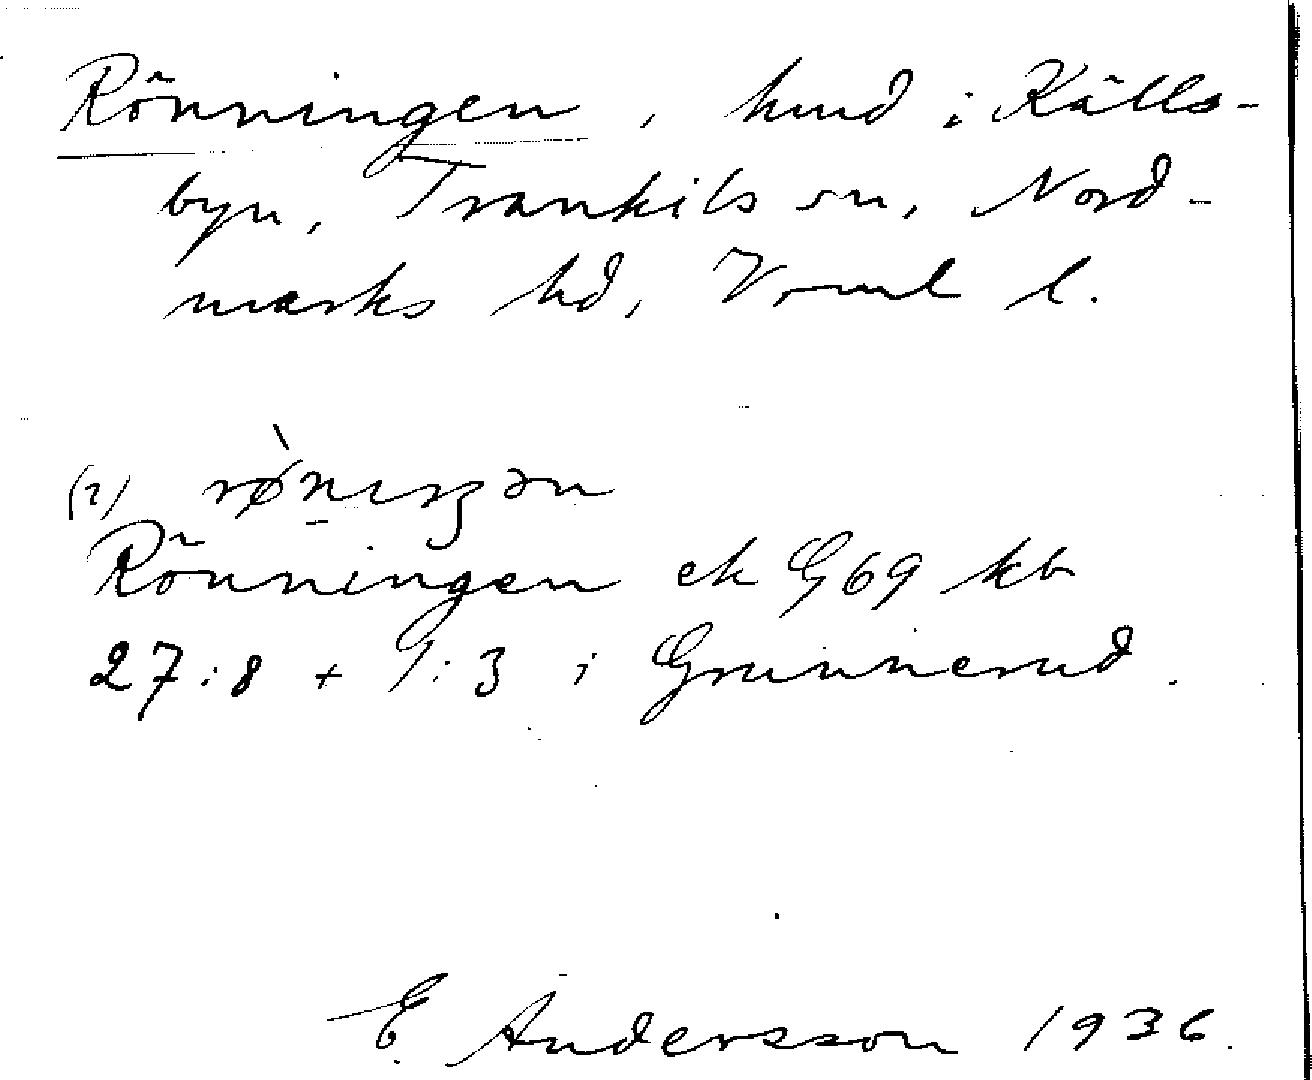 Rönningen, hmd i Källs-
byn, Trankils sn, Nord-
marks hd, Vrml l.
(2) rø̀nıŋən
Rönningen ek G69 kb
27:8 + 9:3 i Grunnerud.
E. Andersson 1936.